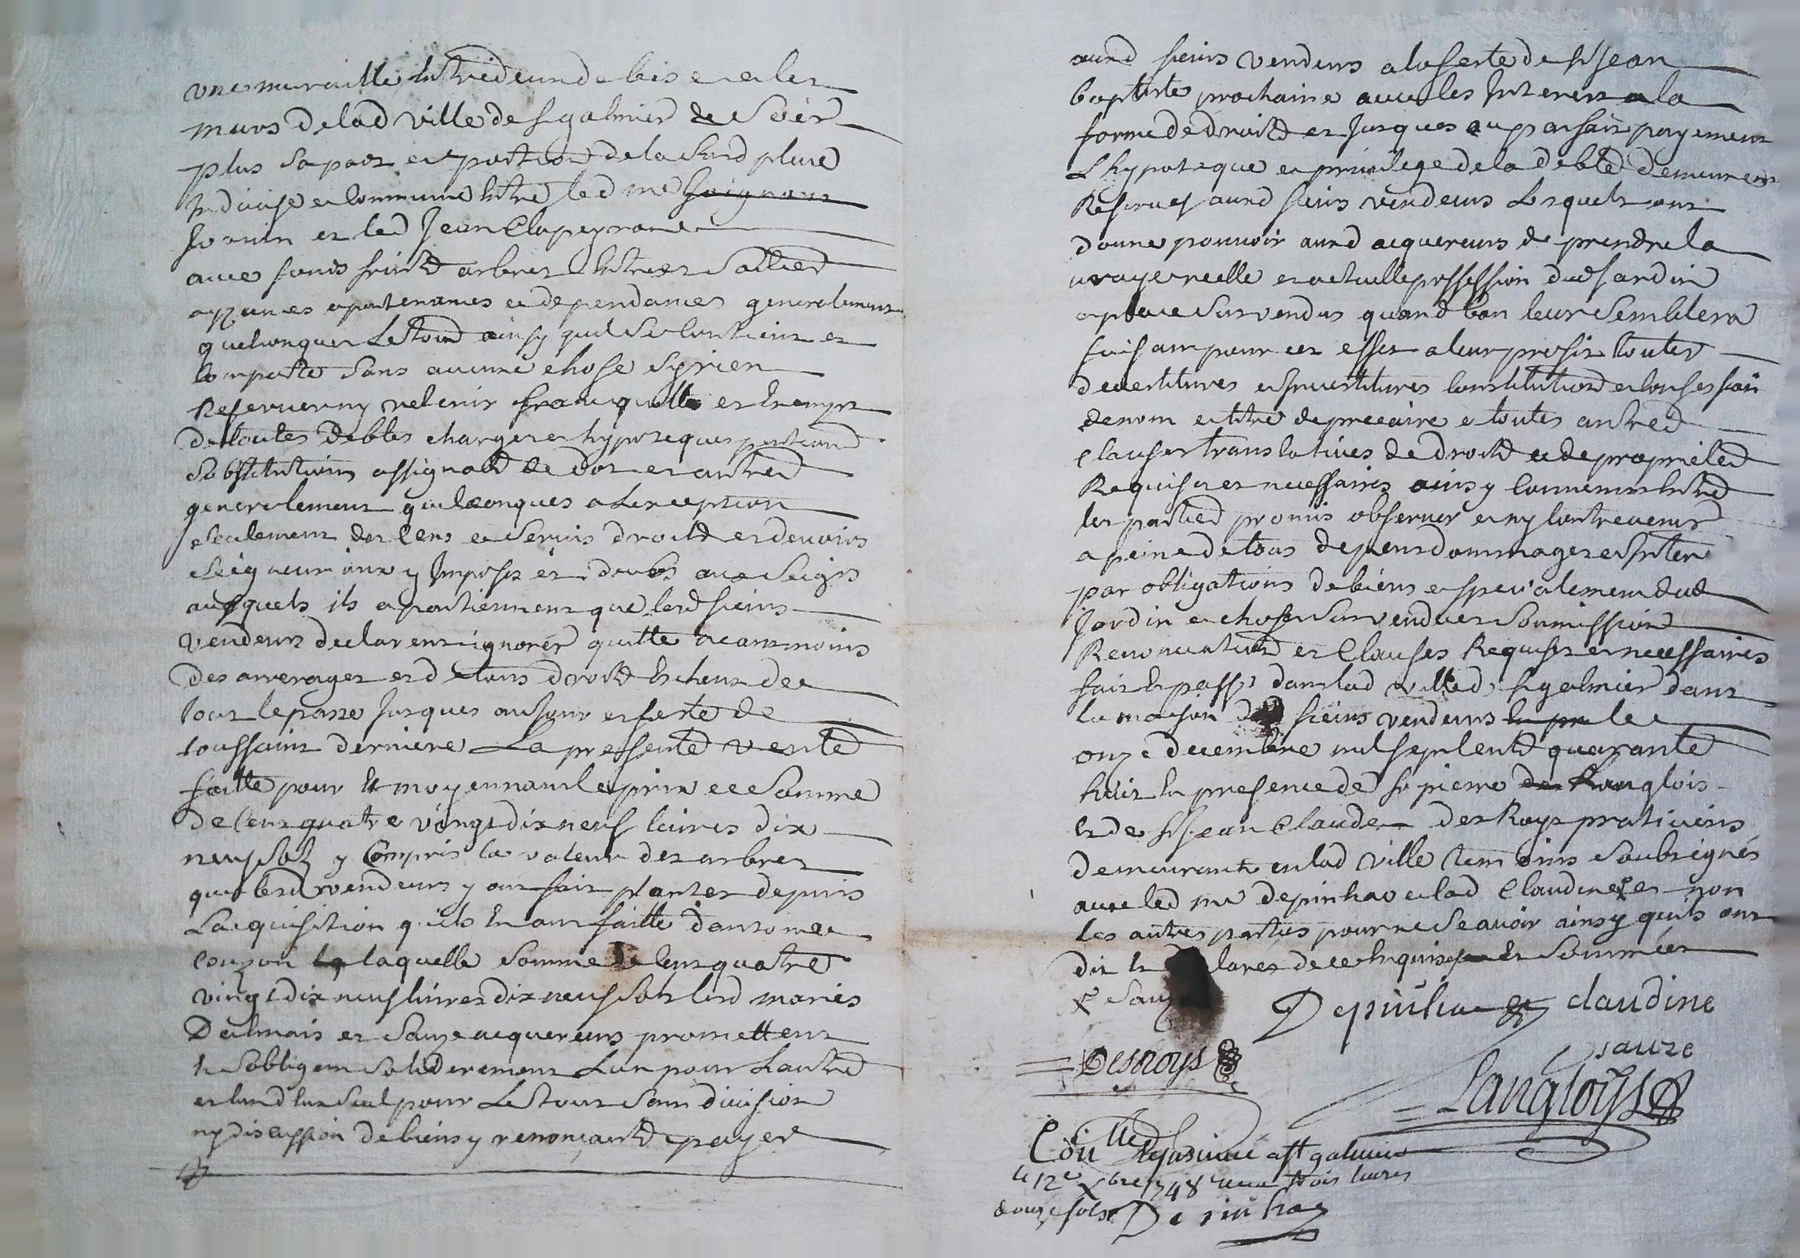 une muraille entredeux de bise et les
murs de lad ville de st galmier de soir
plus sa part et portion de la surd place
indivise et commune entre led me Soignans
et led Jean Clapeyrond
avec fonds fruitd arbres entrées sortied
apartenances et dependances generalement
quelconques Le tout ainsy quil se contient et
comporte sans aucune chose sy rien
Reserver ny retenir franc quitte et exempt
de toutes debtes charges et hypoteques pentiond
substitutions assignatd de dot et autred
generalement quelconques a Lexception
seulement des Cens et servis droitd et devoirs
seigneuriaux y Imposés et deubs aux seigrs
ausquels ils apartiennent que lesd sieurs
vendeurs declarent ignorer quitte neanmoins
des arrerages et de tous droitd Escheus de
tout le passe Jusques au Jour et feste de
toussaint derniere La presente vente
faitte pour et moyennant le prix et somme
de cent quatre vingt dix neuf livres dix
neuf sols y Compris la valeur des arbres
que lesd vendeurs y ont fait planter depuis
Lacquisition quils en ont faitte dantoine
couzon laquelle somme de cent quatre
vingt dix neuf livres dix neuf sols lesd mariés
Delmais et Sauze acquereurs promettent
et sobligent solidairement Lun pour Lautre
et lun deux seul pour Le tout sans division
ny discussion de biens y renonçantd payer
aurd sieurs vendeurs a la feste de st Jean
baptiste prochaine avec les Interets a la
forme de droitd et Jusques au parfait payement
Lhypoteque et privilege de la debte demeurent
Reservés aurd sieurs vendeurs Lesquels ont
donne pouvoir aurd acquereurs de prendre la
vraye reelle et actuelle possession dud Jardin
et place sus vendus quand bon leur semblera
faisant pour cet effet a leur profit toutes
devestitures et Investitures constitutiond et confession
de nom et titre de precaire et toutes autred
clauses translatives de droitd et de proprieted
Requises et necessaires ainsy convenu entre
les partied promis observer et ny contrevenir
a peine de tous depens dommages et Inter
par obligations de biens et specialement dud
Jardin et choses sus vendues soumission
Renonciationd et Clauses Requises et necessaires
fait et passé dans lad ville de st galmier dans
la maison sieurs vendeurs le
onze decembre mil sept cent quarante
huit en presence de sr pierre Langlois
et de sr Jean Claude des Roys praticiens
demeurants en lad ville temoins soubsignés
avec led me depinhac et lad Claudine et non
les autres parties pour ne sçavoir ainsy quils ont
dit et de ce Enquis et sommées
Depinhac claudine
sauze
Desroys
Langloys
Con lle a st galmier
le 12e Xbre 1748 trois livres
douze sols Depinhac